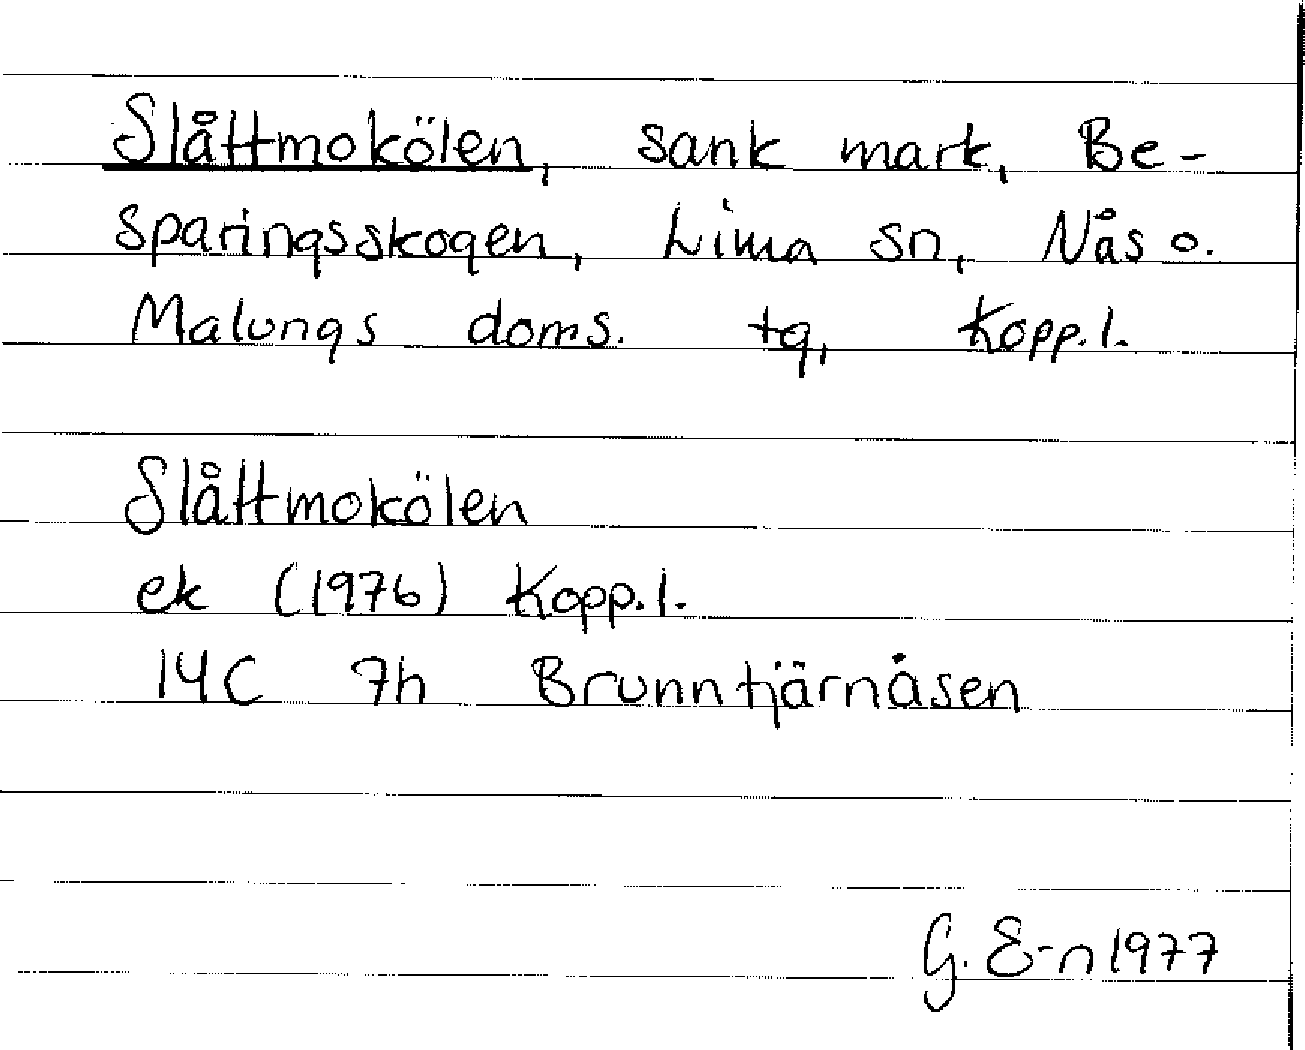 Slåttmokölen, sank mark, Be-
sparingsskogen, Lima sn, Nås o.
Malungs doms. tg, Kopp.l.
Slåttmokölen
ek (1976) Kopp.l.
14C 7h Brunntjärnåsen
G. E-n 1977